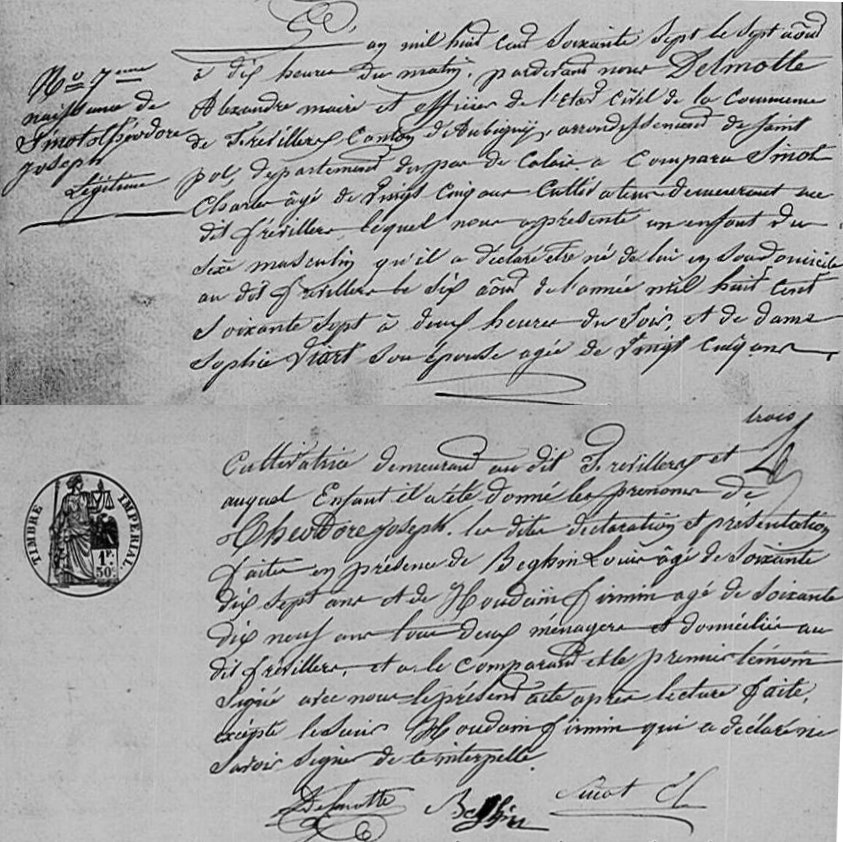 L'an mil huit cent soixante sept le sept août
à dix heures du matin, pardevant nous Delmotte
Alexandre maire et officier de l'état civil de la Commune
de Frévillers Canton d'Aubigny, arrondissement de Saint
pol, département du pas de Calais a Comparu Sinot
Charles âgé de Vingt Cinq ans Cultivateur demeurant au
dit frévillers lequel nous a présenté un enfant du
sexe masculin qu'il a déclaré être né de lui en son domicile
au dit frévillers le six août de l'année mil huit cent
soixante sept à deux heures du soir, et de dame
Sophie Viart son épouse agée de Vingt cinq ans
No 7eme
naissance de
Sinot théodore
joseph
Légitime
trois
Cultivatrice demeurant au dit Frevillers et
auquel Enfant il a été donné les prénoms de
Théodore joseph. les dites déclaration et présentation
faites en présence de Beghin Louis âgé de soixante
dix sept ans et de Houdain firmin agé de soixante
dix neuf ans tous deux ménagers et domiciliés au
dit frévillers, et a le Comparant et le premier témoin
signé avec nous le présent acte après lecture faite,
excepté le sieur Houdain firmin qui a déclaré ne
savoir signer de ce interpellé.
TIMBRE IMPERIAL
1F.
50c.
Delmotte Beghin Sinot Ch